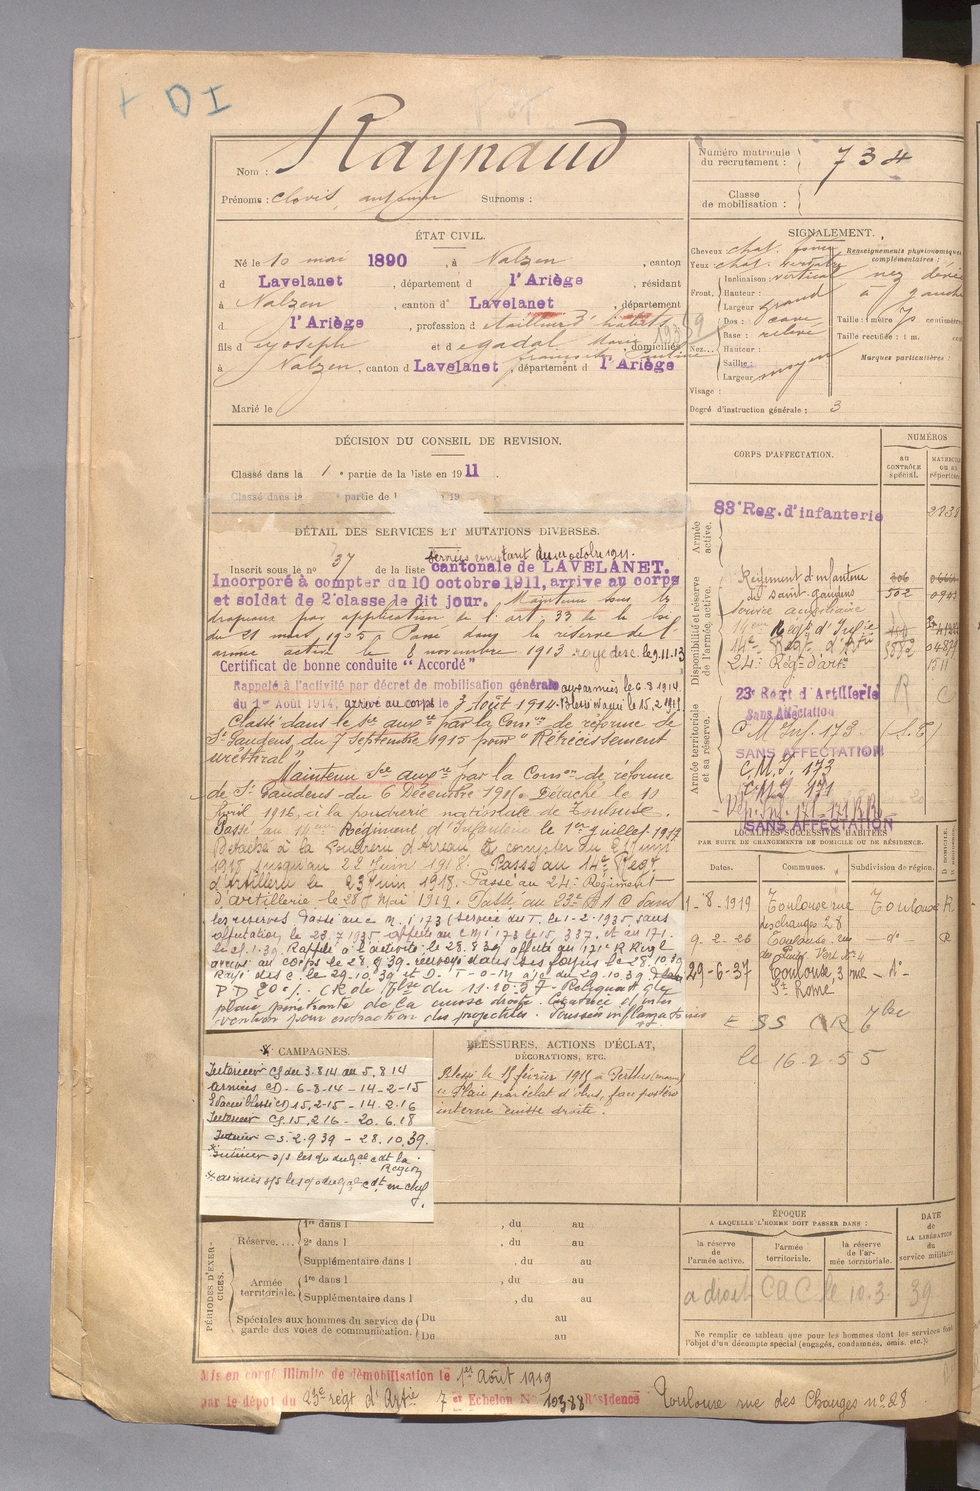 + DI
Nom : Raynaud
Prénoms : Clovis, antonin Surnoms :
Numéro matricule du recrutement : 734
Classe de mobilisation :
ÉTAT CIVIL.
Né le 10 mai 1890, à Nalzen, canton
d Lavelanet, département d l'Ariège, résidant
à Nalzen, canton d' Lavelanet, département
d l'Ariège, profession d tailleur d'habits
fils d Joseph et d egadal Marie
françoise, domiciliés
à Nalzen, canton d Lavelanet, département d l'Ariège
Marié le
SIGNALEMENT.
Cheveux : chat. foncé Renseignements physionomiques complémentaires :
Yeux : chat. verdâtre
Front. Inclinaison : vertical nez dévié
Hauteur : à gauche
Largeur : grand
Nez... Dos : cave Taille : 1 mètre 70 centimètres
Base : relevé Taille rectifiée : 1 m. cent
Hauteur : Marques particulières :
Saillie :
Largeur : moyen
Visage :
Degré d'instruction générale : 3
DÉCISION DU CONSEIL DE REVISION.
Classé dans la 1e partie de la liste en 1911.
Classé dans la partie de l 19
DÉTAIL DES SERVICES ET MUTATIONS DIVERSES.
Services comptant du 1er octobre 1911.
Inscrit sous le n° 37 de la liste cantonale de LAVELANET.
Incorporé à compter du 10 octobre 1911, arrive au corps
et soldat de 2e classe le dit jour. Maintenu sous les
drapeaux par application de l'art. 33 de la loi
du 21 mars 1905. Passé dans la réserve de l'
armée active le 8 novembre 1913 rayé des c. le 9.11.13
Certificat de bonne conduite "Accordé"
Rappelé à l'activité par décret de mobilisation générale aux armées le 6.8.1914.
du 1er Août 1914, arrivé au corps le 3 Août 1914. Blessé évacué le 15.2.1915
Classé dans le Sce auxre par la Comon de réforme de
St Gaudens, du 7 Septembre 1915 pour "Rétrécissement
uréthral"
Maintenu Sce auxre par la Comon de réforme
de St Gaudens du 6 Décembre 1915. Détaché le 10
Avril 1916, à la poudrerie nationale de Toulouse.
Passé au 14ème Régiment d'Infanterie le 1er Juillet 1917
Détaché à la Poudrerie d'Arreau à compter du
1918 jusqu'au 22 Juin 1918. Passé au 14e Régt
d'Artillerie le 23 Juin 1918. Passé au 24e Régiment
d'artillerie le 28 Mai 1919. Passé au 23e R A C dans
les réserves. Passé au C.M.I 173 (service du T. le 1-2-1935 sans
affectation le 23.7.1935 affecté au CMI 173 le 15.3.37. et au 171.
le 25.1.39. Rappelé à l'activité le 28.8.39 affecté au 171e R Regl
arrivé au corps le 28.8.39. renvoyé dans ses foyers le 28.10.39
Rayé des c. le 29.10.39 et D-T-O-M a/c du 29.10.39
P D 20 %. CR de Tlse du 11.10.37 - Reliquat de
plaie pénétrante de la cuisse droite. Cicatrice d'inter
vention pour extraction des projectiles. Poussées inflammatoires
CORPS D'AFFECTATION.
NUMÉROS
AU CONTRÔLE spécial.
MATRICULE OU AU répertoire.
Armée active.
83e Reg. d'infanterie 2238
Disponibilité et réserve de l'armée active.
Régiment d'infanterie
de Saint-gaudens 502
service auxiliaire
14ème Régt d'Infie
14e Régt d'Artie
24e Régt d'artie 1511
Armée territoriale et sa réserve.
23e Regt d'Artillerie
Sans Affectation
C M Inf. 173 (S.T)
SANS AFFECTATION
C.M.I. 173
C.M.I 171
Dép. Inf. 171 - 171 RR
SANS AFFECTATION
LOCALITÉS SUCCESSIVES HABITÉES
PAR SUITE DE CHANGEMENTS DE DOMICILE OU DE RÉSIDENCE.
Dates. Communes. Subdivision de région. D. DOMICILE. R. RÉSIDENCE.
1-8-1919 Toulouse rue des changes 28 Toulouse R
9-2-26 Toulouse. rue du Puits Vert n° 4 -d°- R
29-6-37 Toulouse, 3 rue St Rome -d°-
E SS CR 7bre
le 16-2-55
* CAMPAGNES.
Intérieur CS du 3.8 14 au 5.8 14
armées CD. 6-8-14 - 14-2-15
Evacué blessé CD 15.2-15 - 14.2.16
Intérieur CS. 15.2.16 - 20.6.18
Intérieur CS. 2.9 39 - 28.10.39.
* intérieur s/s les o/ du Gal cdt la
Région
* armées s/s les o/ du Gal cdt en chef.
BLESSURES, ACTIONS D'ÉCLAT,
DÉCORATIONS, ETC.
Blessé le 15 février 1915 à Perthes (marne)
"Plaie par éclat d'obus, face postéro
interne cuisse droite.
PÉRIODES D'EXERCICES.
Réserve.... 1re dans l , du au
2e dans l , du au
Supplémentaire dans l , du au
Armée territoriale. 1re dans l , du au
Supplémentaire dans l , du au
Spéciales aux hommes du service de garde des voies de communication. Du au
Du au
ÉPOQUE
A LAQUELLE L'HOMME DOIT PASSER DANS :
la réserve de l'armée active. l'armée territoriale. la réserve de l'armée territoriale.
DATE de LA LIBÉRATION du service militaire.
a droit CAC le 10.3. 39
Ne remplir ce tableau que pour les hommes dont les services font
l'objet d'un décompte spécial (engagés, condamnés, omis. etc.).
Mis en congé illimité de démobilisation le 1er Août 1919
par le dépôt du 23e régt d'Artie 7e Echelon N° 10388 Résidence Toulouse rue des Changes n° 28